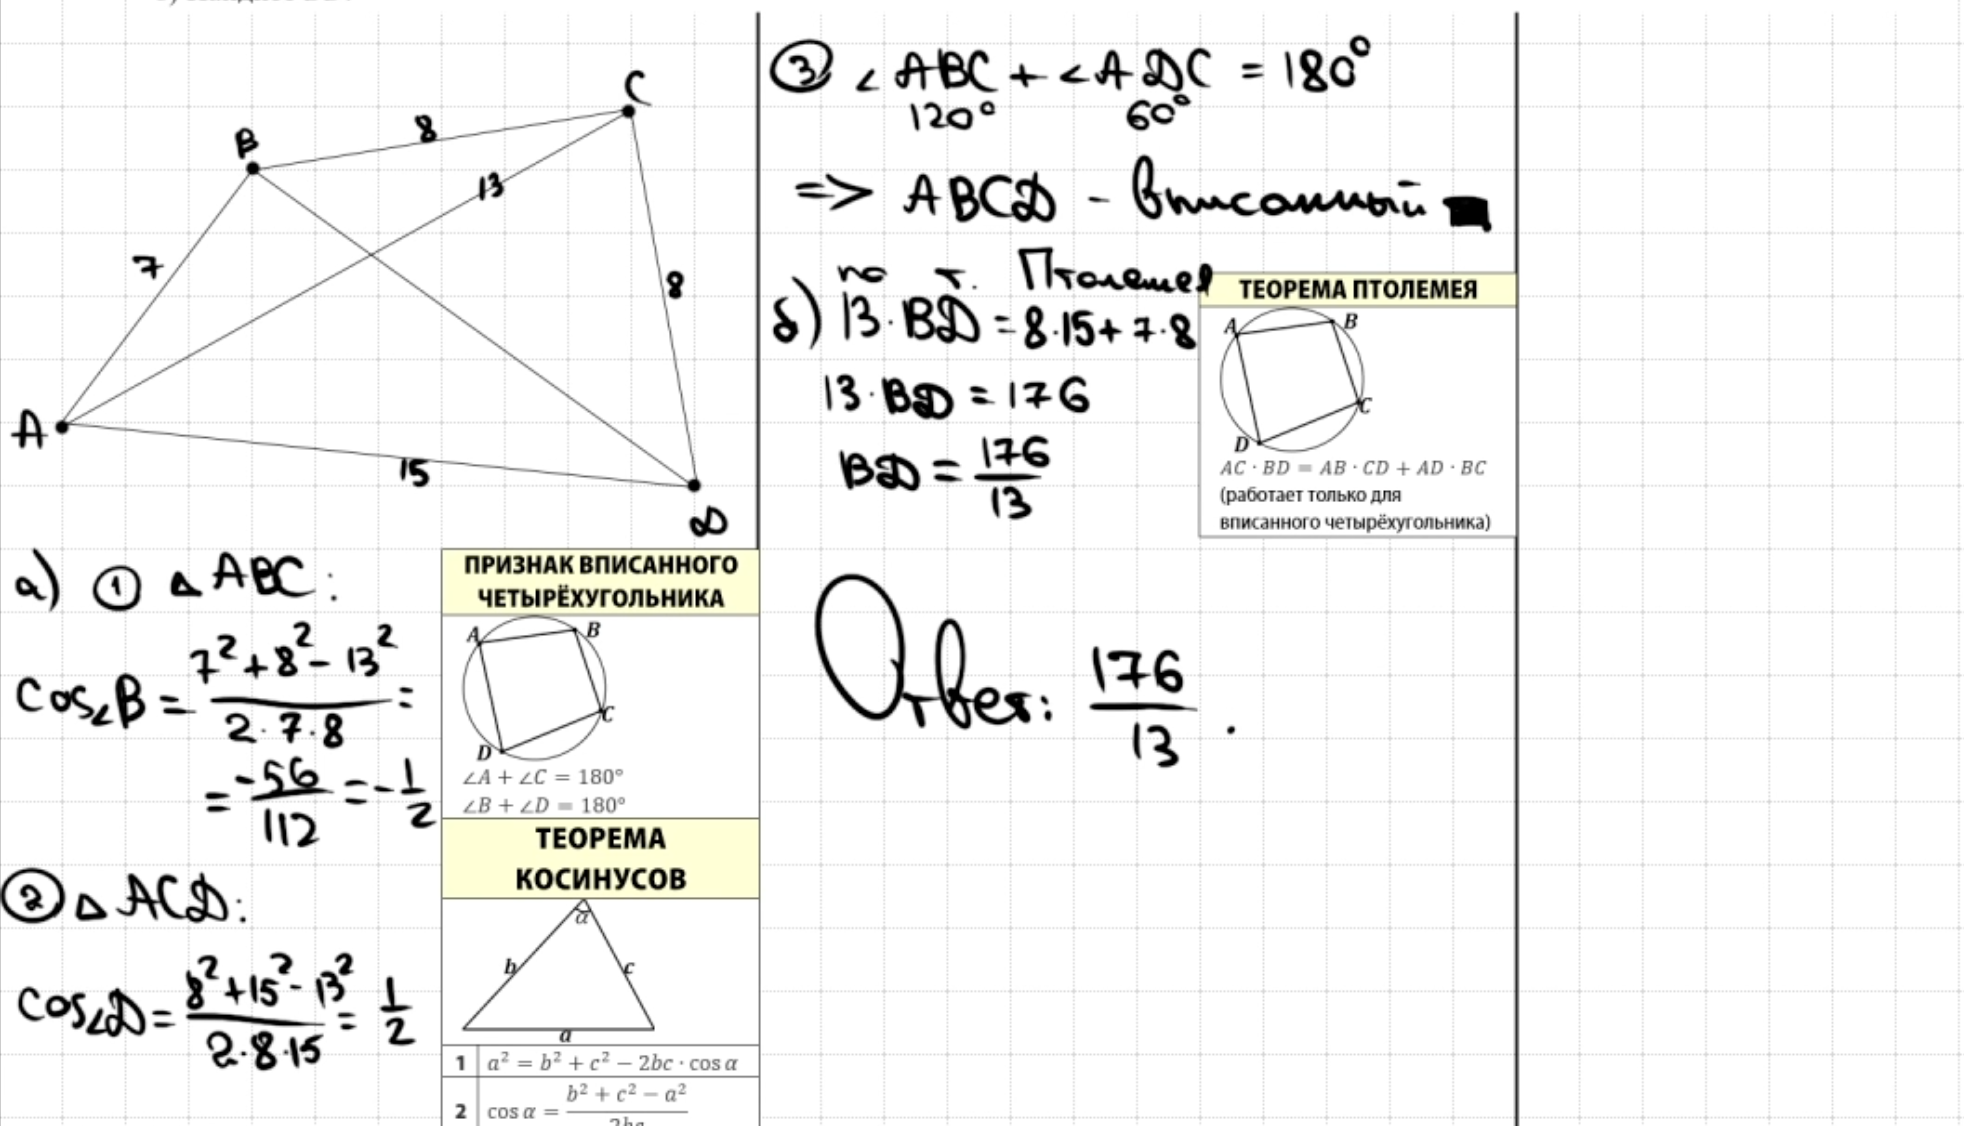 B
8
C
13
7
8
A
15
D
а) ① △ ABC:
cos∠B = (7² + 8² - 13²) / (2 · 7 · 8) =
= -56 / 112 = - 1/2
② △ ACD:
cos∠D = (8² + 15² - 13²) / (2 · 8 · 15) = 1/2
ПРИЗНАК ВПИСАННОГО
ЧЕТЫРЁХУГОЛЬНИКА
A
B
C
D
∠A + ∠C = 180°
∠B + ∠D = 180°
ТЕОРЕМА
КОСИНУСОВ
α
b
c
a
1 a² = b² + c² − 2bc · cos α
2 cos α = (b² + c² − a²)
③ ∠ABC + ∠ADC = 180°
120° 60°
=> ABCD - вписанный
по т. Птолемея
б) 13 · BD = 8·15 + 7·8
13 · BD = 176
BD = 176/13
ТЕОРЕМА ПТОЛЕМЕЯ
A
B
C
D
AC · BD = AB · CD + AD · BC
(работает только для
вписанного четырёхугольника)
Ответ: 176/13 .